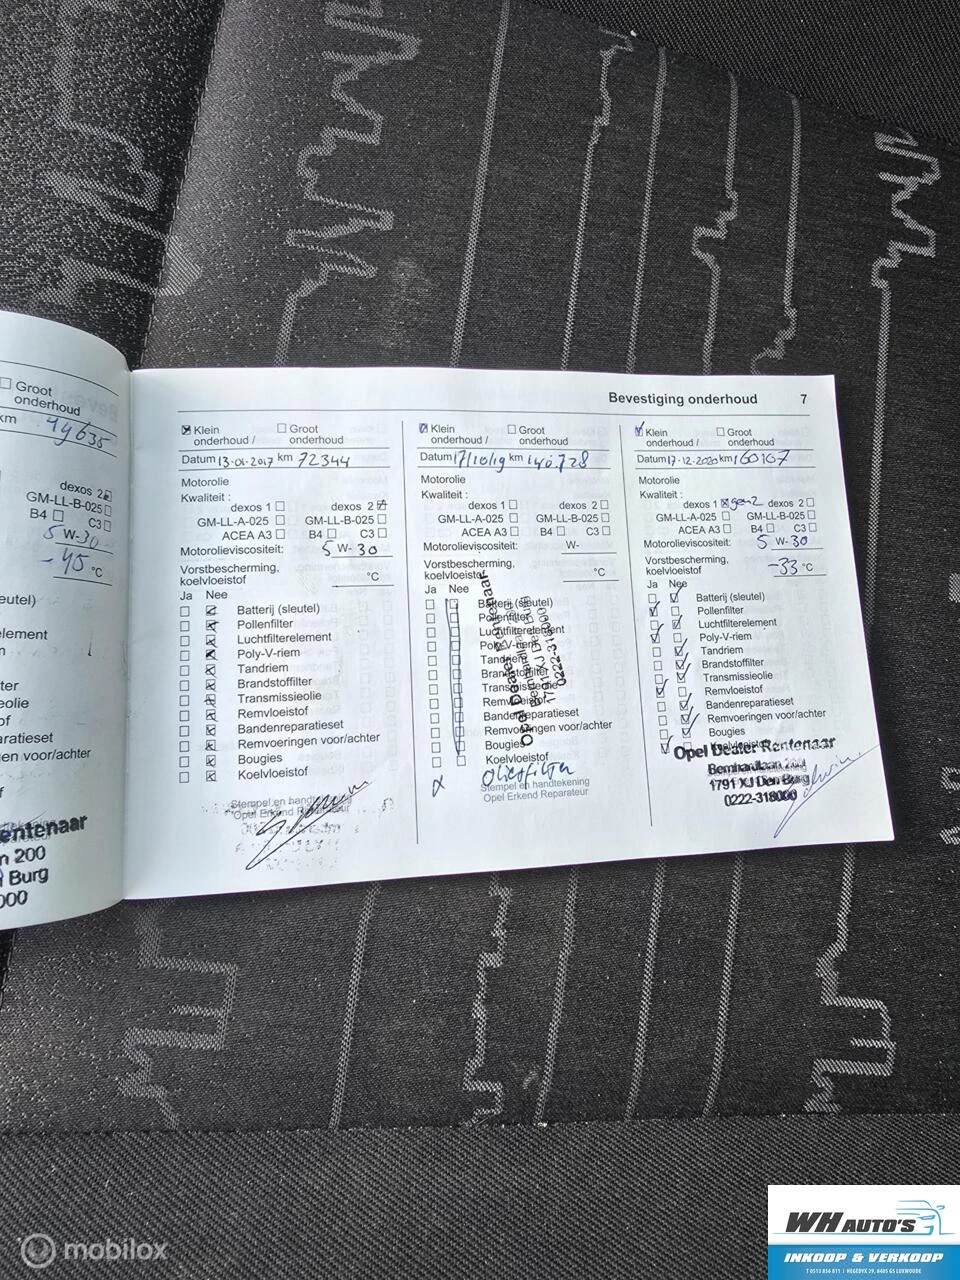 Groot
onderhoud
km 49635
dexos 2
GM-LL-B-025
B4 C3
5 W-30
-45 °C
eutel)
element
n
ter
eolie
of
aratieset
en voor/achter
f
entenaar
n 200
Burg
000
Bevestiging onderhoud 7
Klein onderhoud / Groot onderhoud
Datum 13-01-2017 km 72344
Motorolie
Kwaliteit :
dexos 1 dexos 2
GM-LL-A-025 GM-LL-B-025
ACEA A3 B4 C3
Motorolieviscositeit: 5 W- 30
Vorstbescherming,
koelvloeistof °C
Ja Nee
Batterij (sleutel)
Pollenfilter
Luchtfilterelement
Poly-V-riem
Tandriem
Brandstoffilter
Transmissieolie
Remvloeistof
Bandenreparatieset
Remvoeringen voor/achter
Bougies
Koelvloeistof
Stempel en handtekening
Opel Erkend Reparateur
Klein onderhoud / Groot onderhoud
Datum 17/10/19 km 140.728
Motorolie
Kwaliteit :
dexos 1 dexos 2
GM-LL-A-025 GM-LL-B-025
ACEA A3 B4 C3
Motorolieviscositeit: W-
Vorstbescherming,
koelvloeistof °C
Ja Nee
Batterij (sleutel)
Pollenfilter
Luchtfilterelement
Poly-V-riem
Tandriem
Brandstoffilter
Transmissieolie
Remvloeistof
Bandenreparatieset
Remvoeringen voor/achter
Bougies
Koelvloeistof
Oliefilter
Stempel en handtekening
Opel Erkend Reparateur
Opel Dealer Rentenaar
1791 XJ Den Burg
0222-318000
Klein onderhoud / Groot onderhoud
Datum 17-12-2020 km 160167
Motorolie
Kwaliteit :
dexos 1 gen2 dexos 2
GM-LL-A-025 GM-LL-B-025
ACEA A3 B4 C3
Motorolieviscositeit: 5 W- 30
Vorstbescherming,
koelvloeistof -33 °C
Ja Nee
Batterij (sleutel)
Pollenfilter
Luchtfilterelement
Poly-V-riem
Tandriem
Brandstoffilter
Transmissieolie
Remvloeistof
Bandenreparatieset
Remvoeringen voor/achter
Bougies
Koelvloeistof
Opel Dealer Rentenaar
Bernhardlaan 200
1791 XJ Den Burg
0222-318000
mobilox
WH AUTO'S
INKOOP & VERKOOP
T 0513 856 811 | HEGEDYK 29, 8405 GS LUXWOUDE